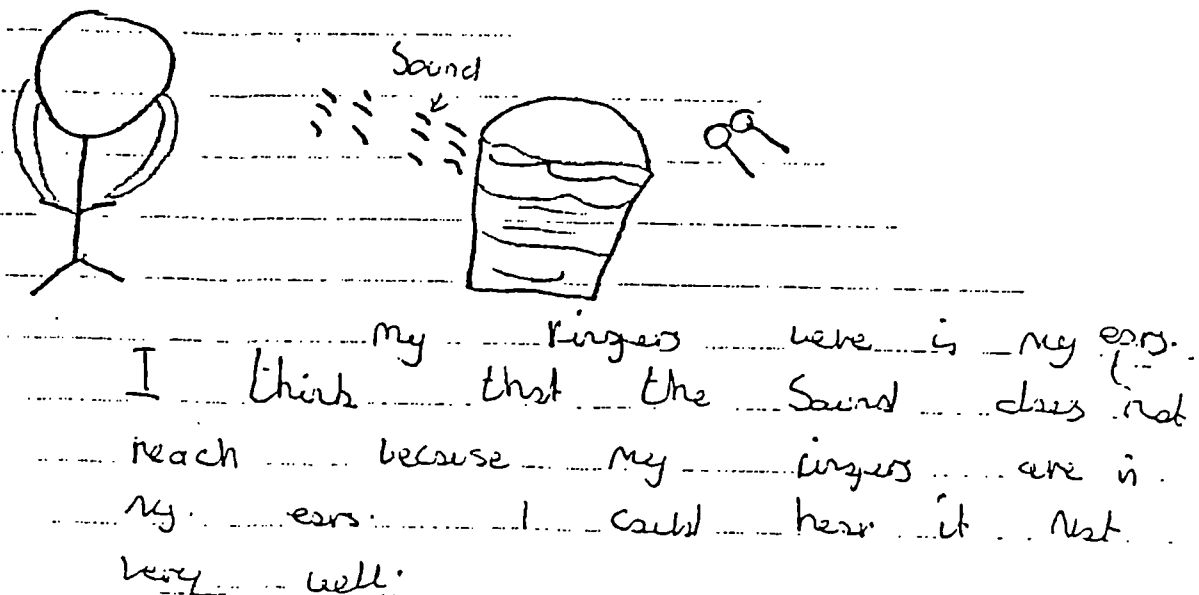 Sound
My fingers were is my ears.
I think that the Sound does not
reach because my fingers are in
my ears. I could hear it not
very well.